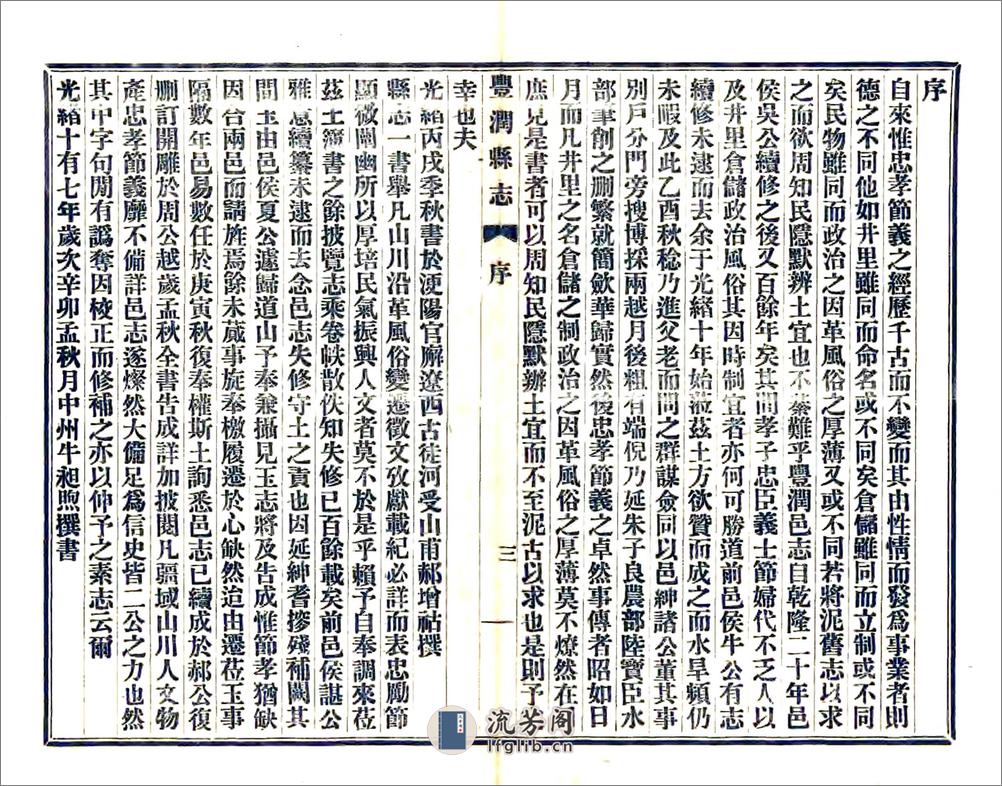 序
自來惟忠孝節義之經歷千古而不變而其由性情而發爲事業者則
德之不同他如井里雖同而命名或不同矣倉儲雖同而立制或不同
矣民物雖同而政治之因革風俗之厚薄又或不同若將泥舊志以求
之而欲周知民隱默辨土宜也不綦難乎豐潤邑志自乾隆二十年邑
侯吳公續修之後又百餘年矣其間孝子忠臣義士節婦代不乏人以
及井里倉儲政治風俗其因時制宜者亦何可勝道前邑侯牛公有志
續修未逮而去余于光緒十年始蒞茲土方欲贊而成之而水旱頻仍
未暇及此乙酉秋稔乃進父老而問之群謀僉同以邑紳諸公董其事
別戶分門旁搜博採兩越月後粗有端倪乃延朱子良農部陸寶臣水
部筆削之刪繁就簡斂華歸實然後忠孝節義之卓然事傳者昭如日
月而凡井里之名倉儲之制政治之因革風俗之厚薄莫不燎然在目
庶見是書者可以周知民隱默辦土宜而不至泥古以求也是則予之
豐潤縣志 序 三
幸也夫
光緒丙戌季秋書於浭陽官廨遼西古徒河受山甫郝增祜撰
縣志一書舉凡山川沿革風俗變遷徵文攷獻載紀必詳而表忠勵節
顯微闡幽所以厚培民氣振興人文者莫不於是乎賴予自奉調來蒞
茲土簿書之餘披覽志乘卷帙散佚知失修已百餘載矣前邑侯諶公
雅意續纂未逮而去念邑志失修守土之責也因延紳耆掇殘補闕其
間玉由邑侯夏公遽歸道山予奉兼攝見玉志將及告成惟節孝猶缺
因合兩邑而請旌焉餘未蕆事旋奉檄履遷於心缺然迨由遷蒞玉事
隔數年邑易數任於庚寅秋復奉權斯土詢悉邑志已續成於郝公復
刪訂開雕於周公越歲孟秋全書告成詳加披閱凡疆域山川人文物
產忠孝節義靡不備詳邑志遂燦然大備足爲信史皆二公之力也然
其中字句閒有譌奪因校正而修補之亦以伸予之素志云爾
光緒十有七年歲次辛卯孟秋月中州牛昶煦撰書
流芳阁
lfglib.cn